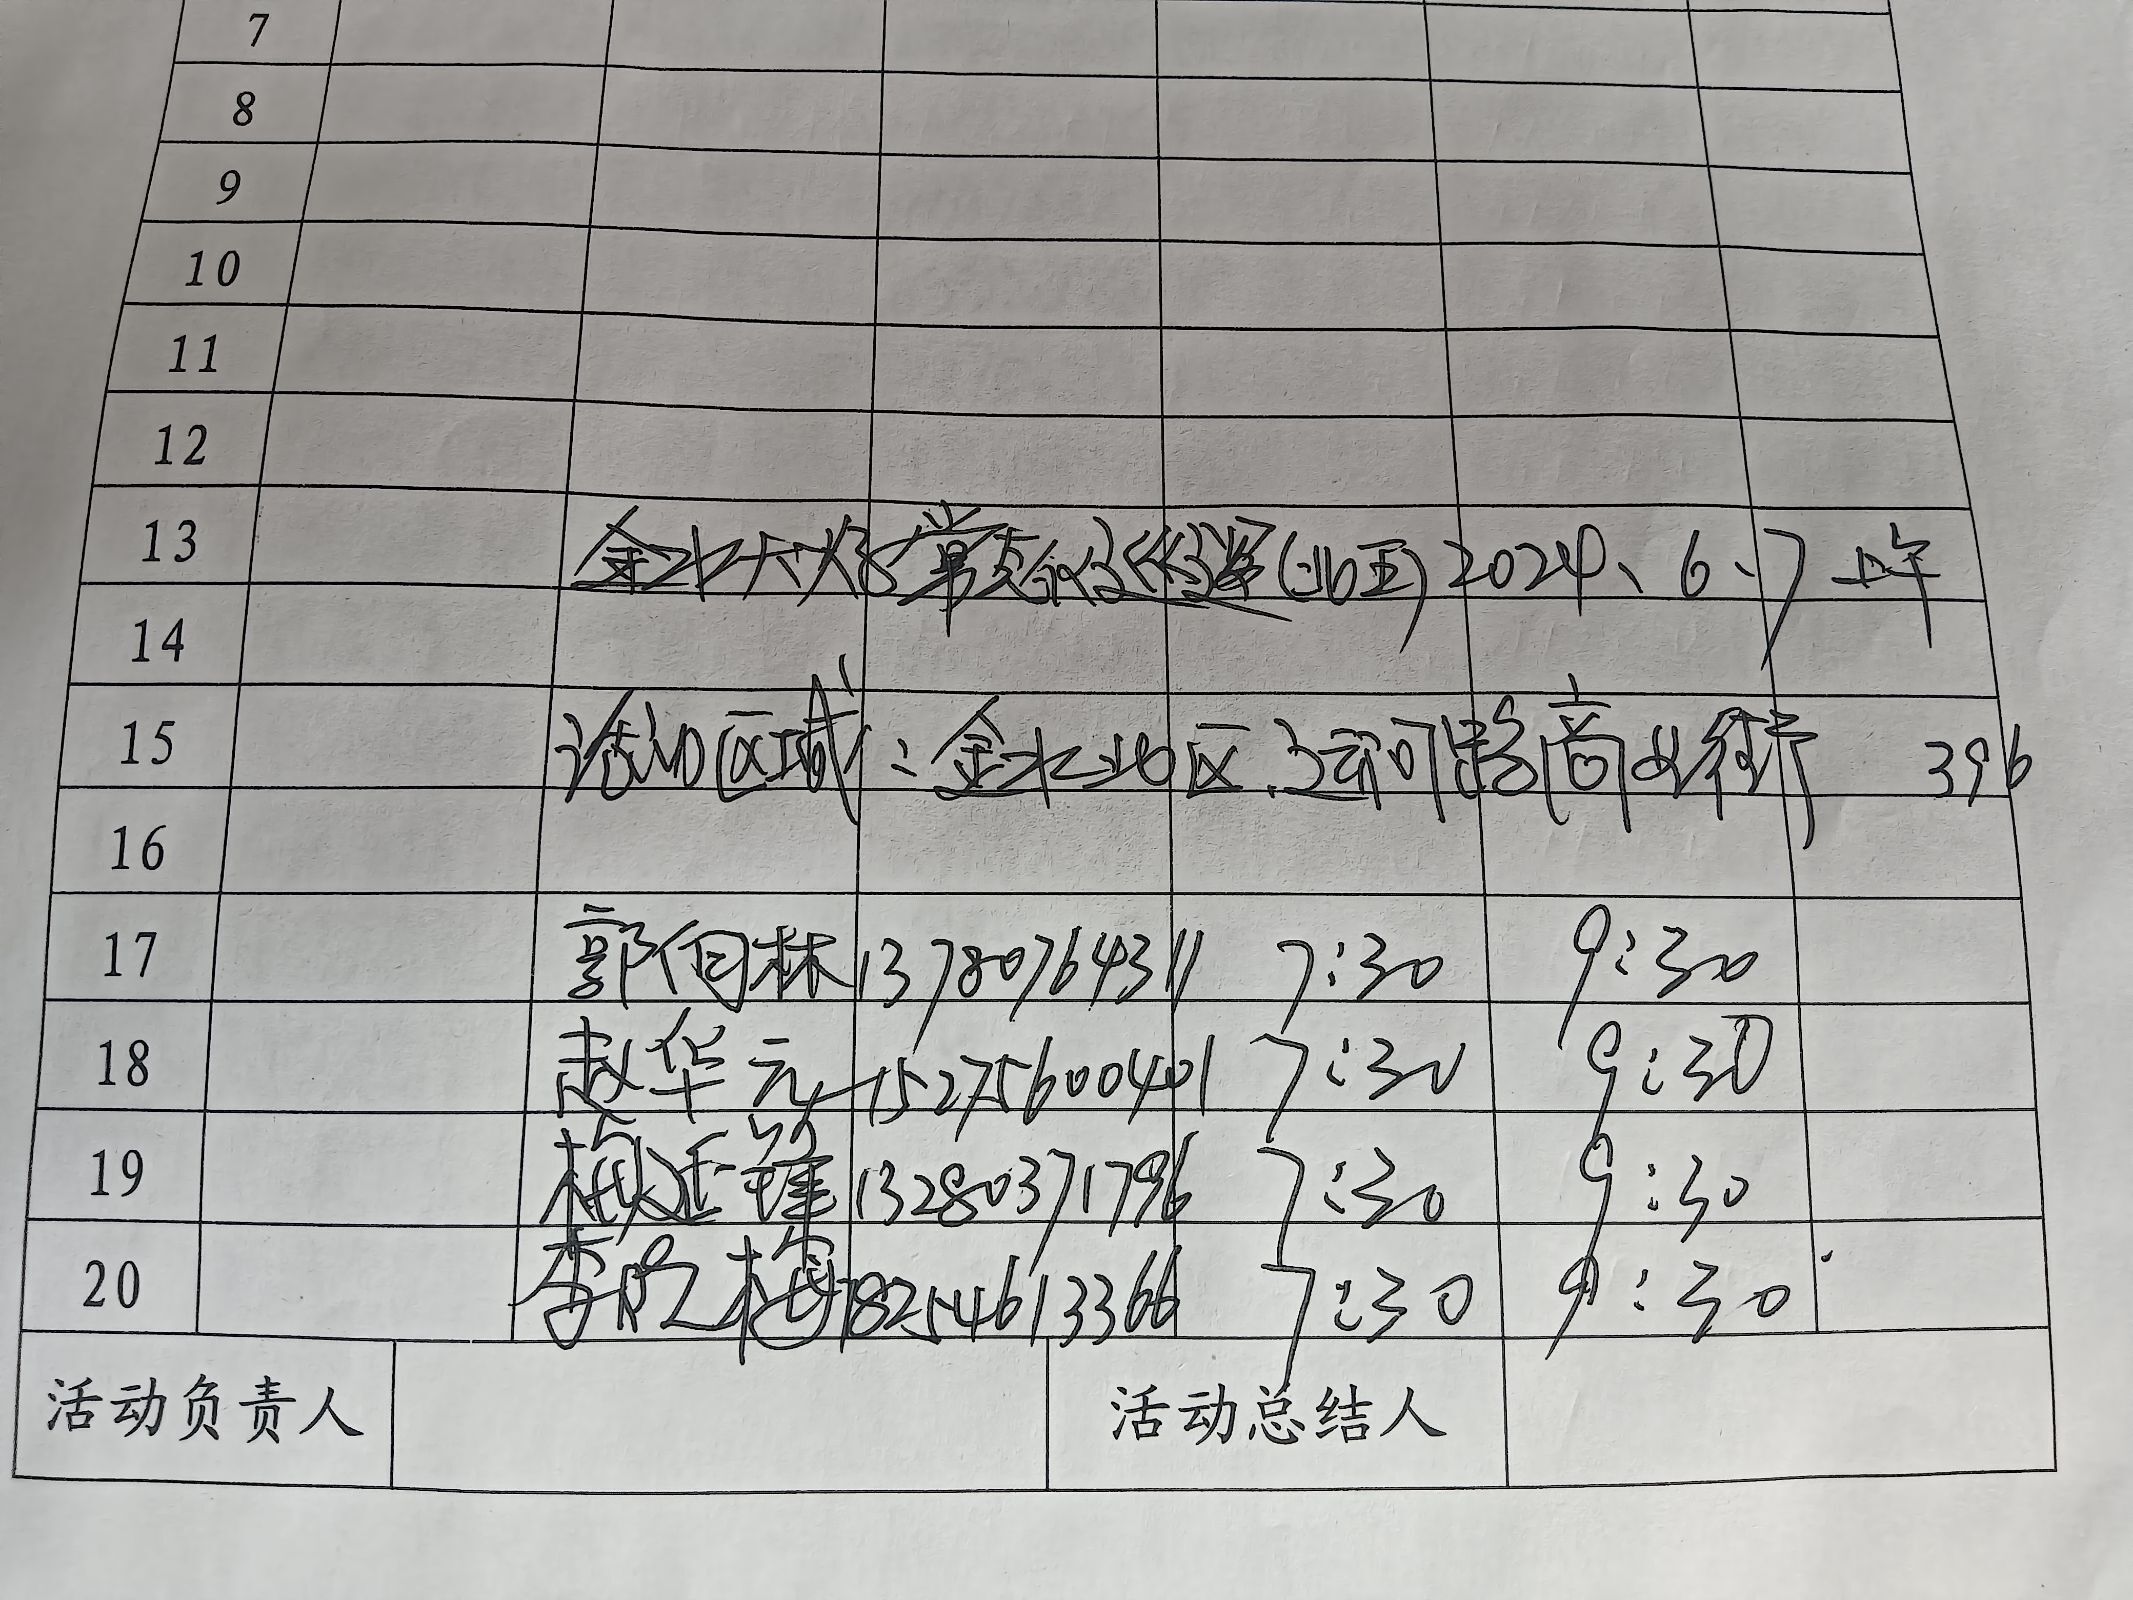 7
8
9
10
11
12
13 金水大 (北王) 2024、6、7 上午
14
15 活动区域：金水北区、运河路商业街 396
16
17 郭向林 13780764311 7:30 9:30
18 赵华元 15275600401 7:30 9:30
19 梅延锋 13280371796 7:30 9:30
20 李 梅 18254613366 7:30 9:30
活动负责人 活动总结人